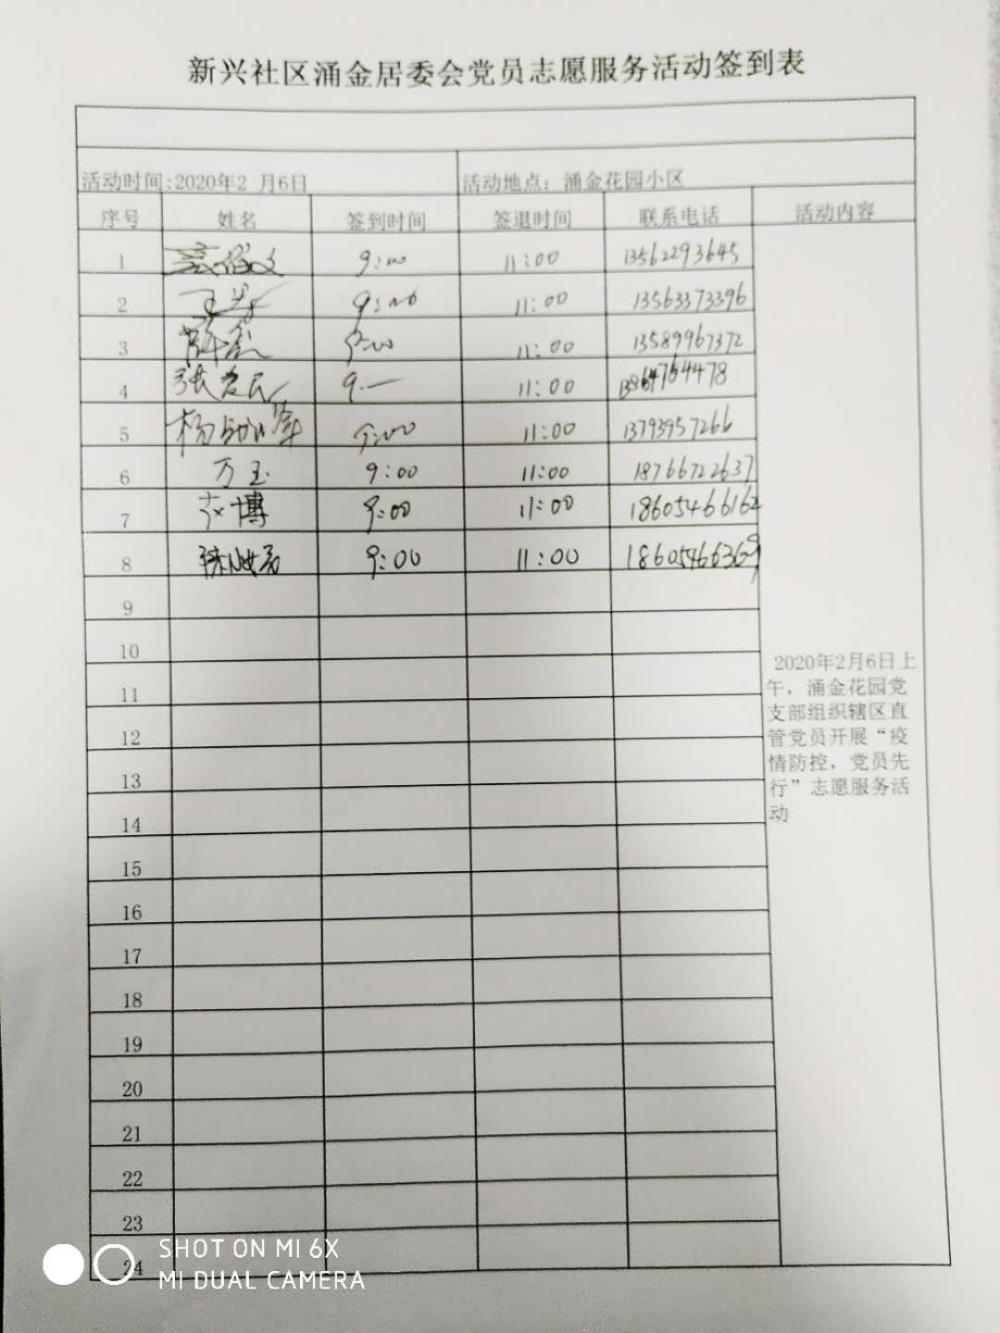 新兴社区涌金居委会党员志愿服务活动签到表
活动时间:2020年2 月6日 活动地点：涌金花园小区
序号 姓名 签到时间 签退时间 联系电话 活动内容
1 9:00 11:00 13562293645
2 9:00 11:00 13563373396
3 9:00 11:00 13589967372
4 9 11:00 13864764478
5 9:00 11:00 13793957266
6 万玉 9:00 11:00 18766722637
7 博 9:00 11:00 18605466162
8 9:00 11:00 18605466369
9
10
11
12
13
14
15
16
17
18
19
20
21
22
23
24
2020年2月6日上
午，涌金花园党
支部组织辖区直
管党员开展“疫
情防控，党员先
行”志愿服务活
动
SHOT ON MI 6X
MI DUAL CAMERA